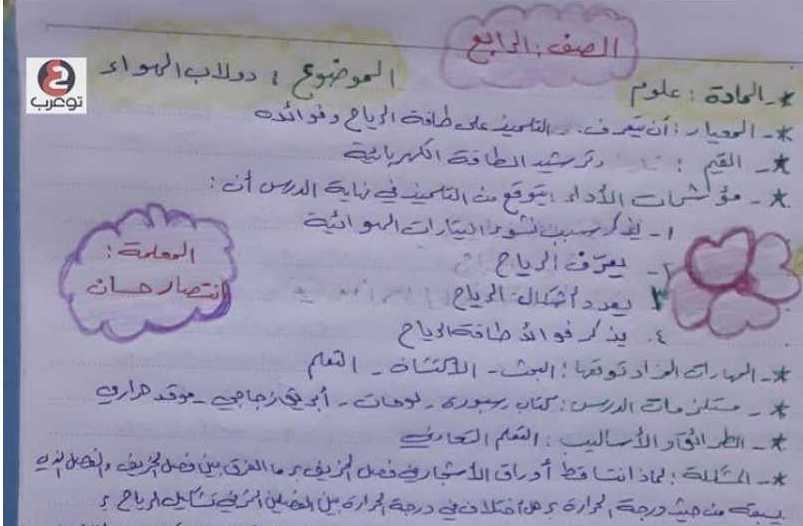 الصف : الرابع
توعرب
*- المادة : علوم الموضوع : دولاب الهواء
*- المعيار : أن يتعرف التلميذ على طاقة الرياح وفوائده
*- القيم : ترشيد الطاقة الكهربائية
*- مؤشرات الأداء : يتوقع من التلميذ في نهاية الدرس أن :
١- يذكر سبب نشوء التيارات الهوائية
٢- يعرّف الرياح
٣ يعدد أشكال الرياح
٤. يذكر فوائد طاقة الرياح
المعلمة :
انتصار حسان
*- المهارات المراد توقعها : البحث - الاكتشاف - التعلم
*- مستلزمات الدرس : كتاب - سبورة - لوحات - أبريق زجاجي - موقد حراري
*- الطرائق والأساليب : التعلم التعاوني
*- المشكلة : لماذا تتساقط أوراق الأشجار في فصل الخريف ؟ ما الفرق بين فصل الخريف والفصل الذي
يسبقه من حيث درجة الحرارة ؟ هل اختلاف في درجة الحرارة بين الفصلين تشكيل الرياح ؟